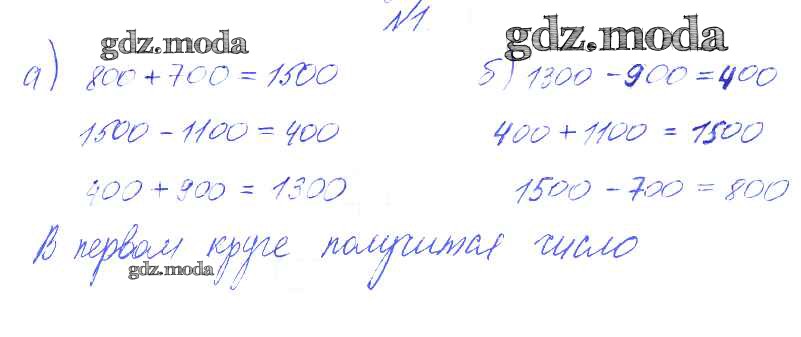 №1.
gdz.moda gdz.moda
а) 800 + 700 = 1500 б) 1300 - 900 = 400
1500 - 1100 = 400 400 + 1100 = 1500
400 + 900 = 1300 1500 - 700 = 800
В первом круге получится число
gdz.moda